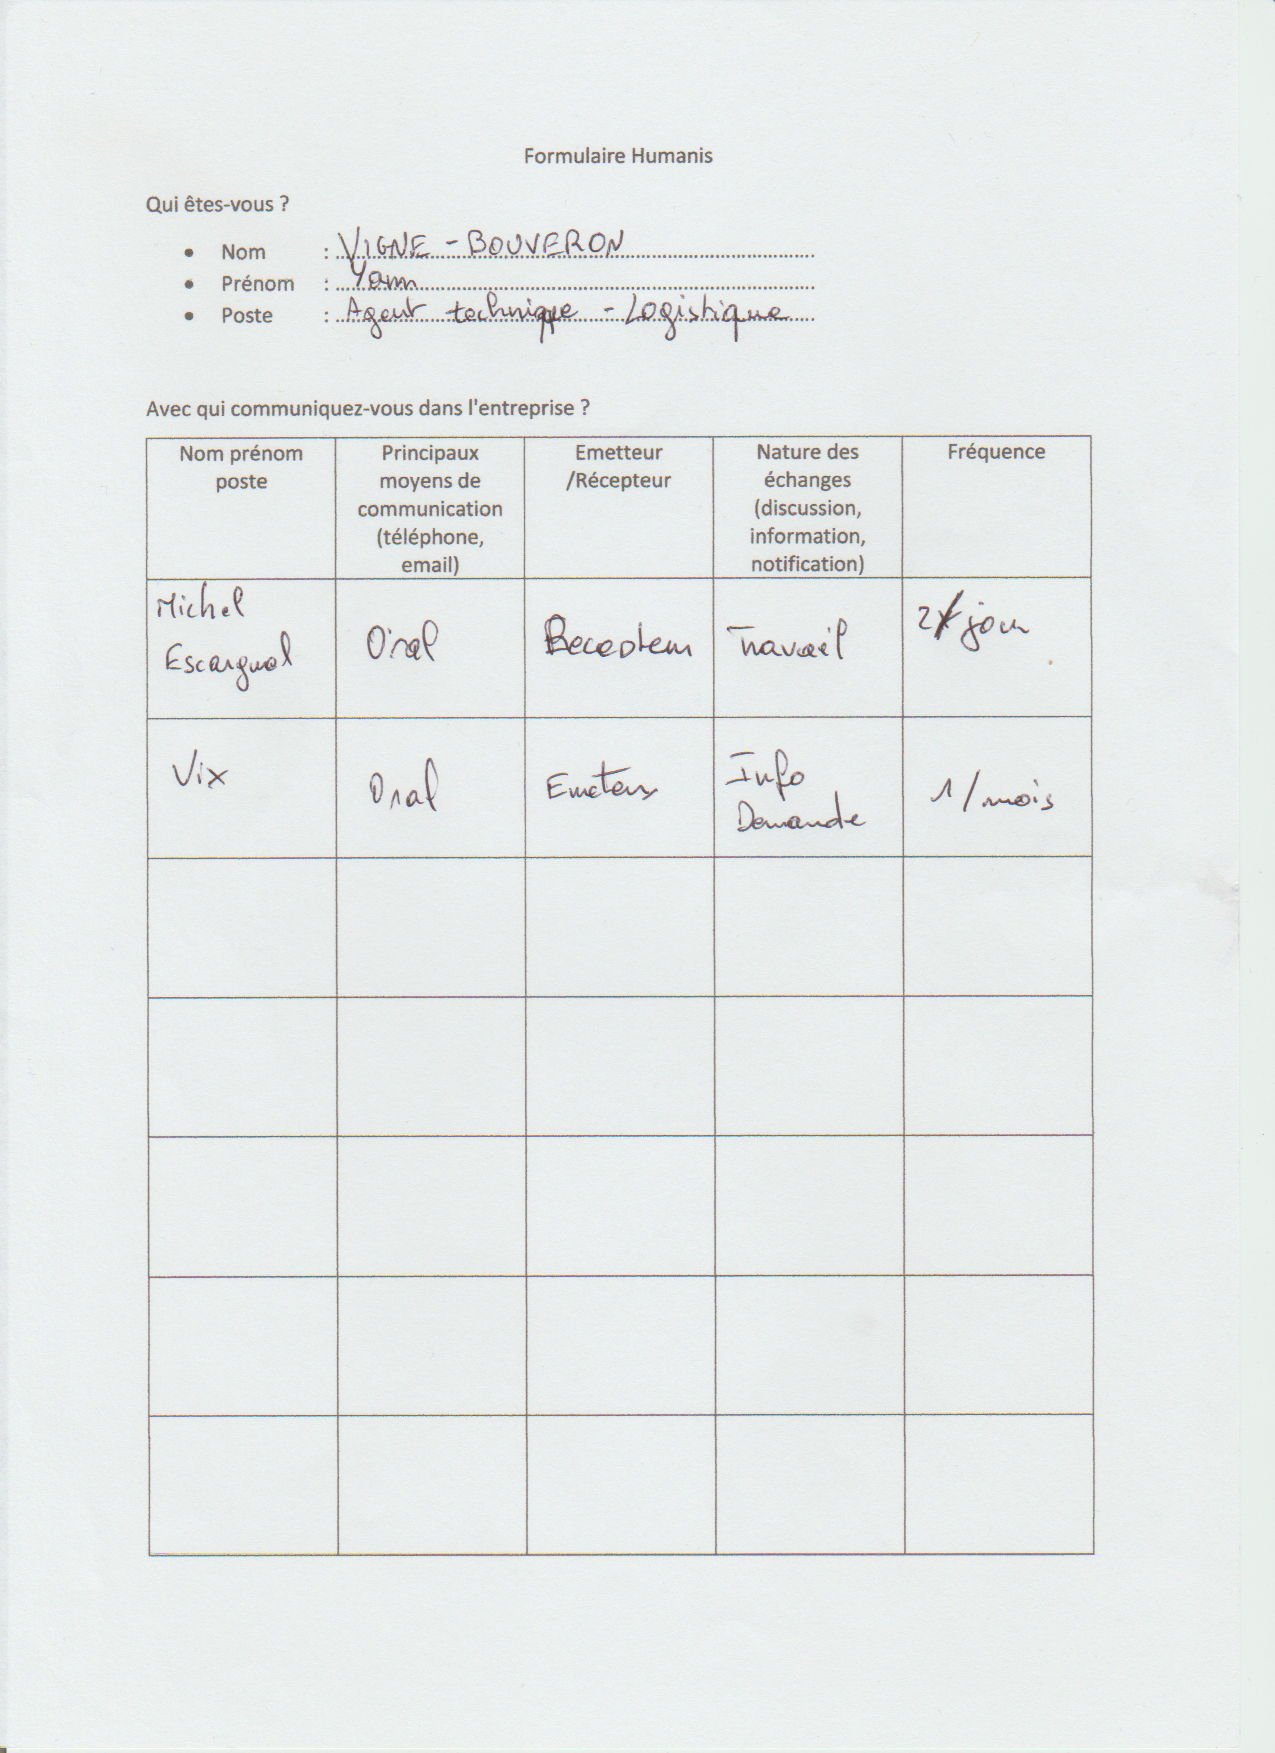 Formulaire Humanis
Qui êtes-vous ?
• Nom : VIGNE - BOUVERON
• Prénom : Yann
• Poste : Agent technique - Logistique
Avec qui communiquez-vous dans l'entreprise ?
Nom prénom
poste
Principaux
moyens de
communication
(téléphone,
email)
Emetteur
/Récepteur
Nature des
échanges
(discussion,
information,
notification)
Fréquence
Michel
Escargual
Oral
Recepteur
Travail
2/jour
Vix
Oral
Emeteur
Info
Demande
1/mois